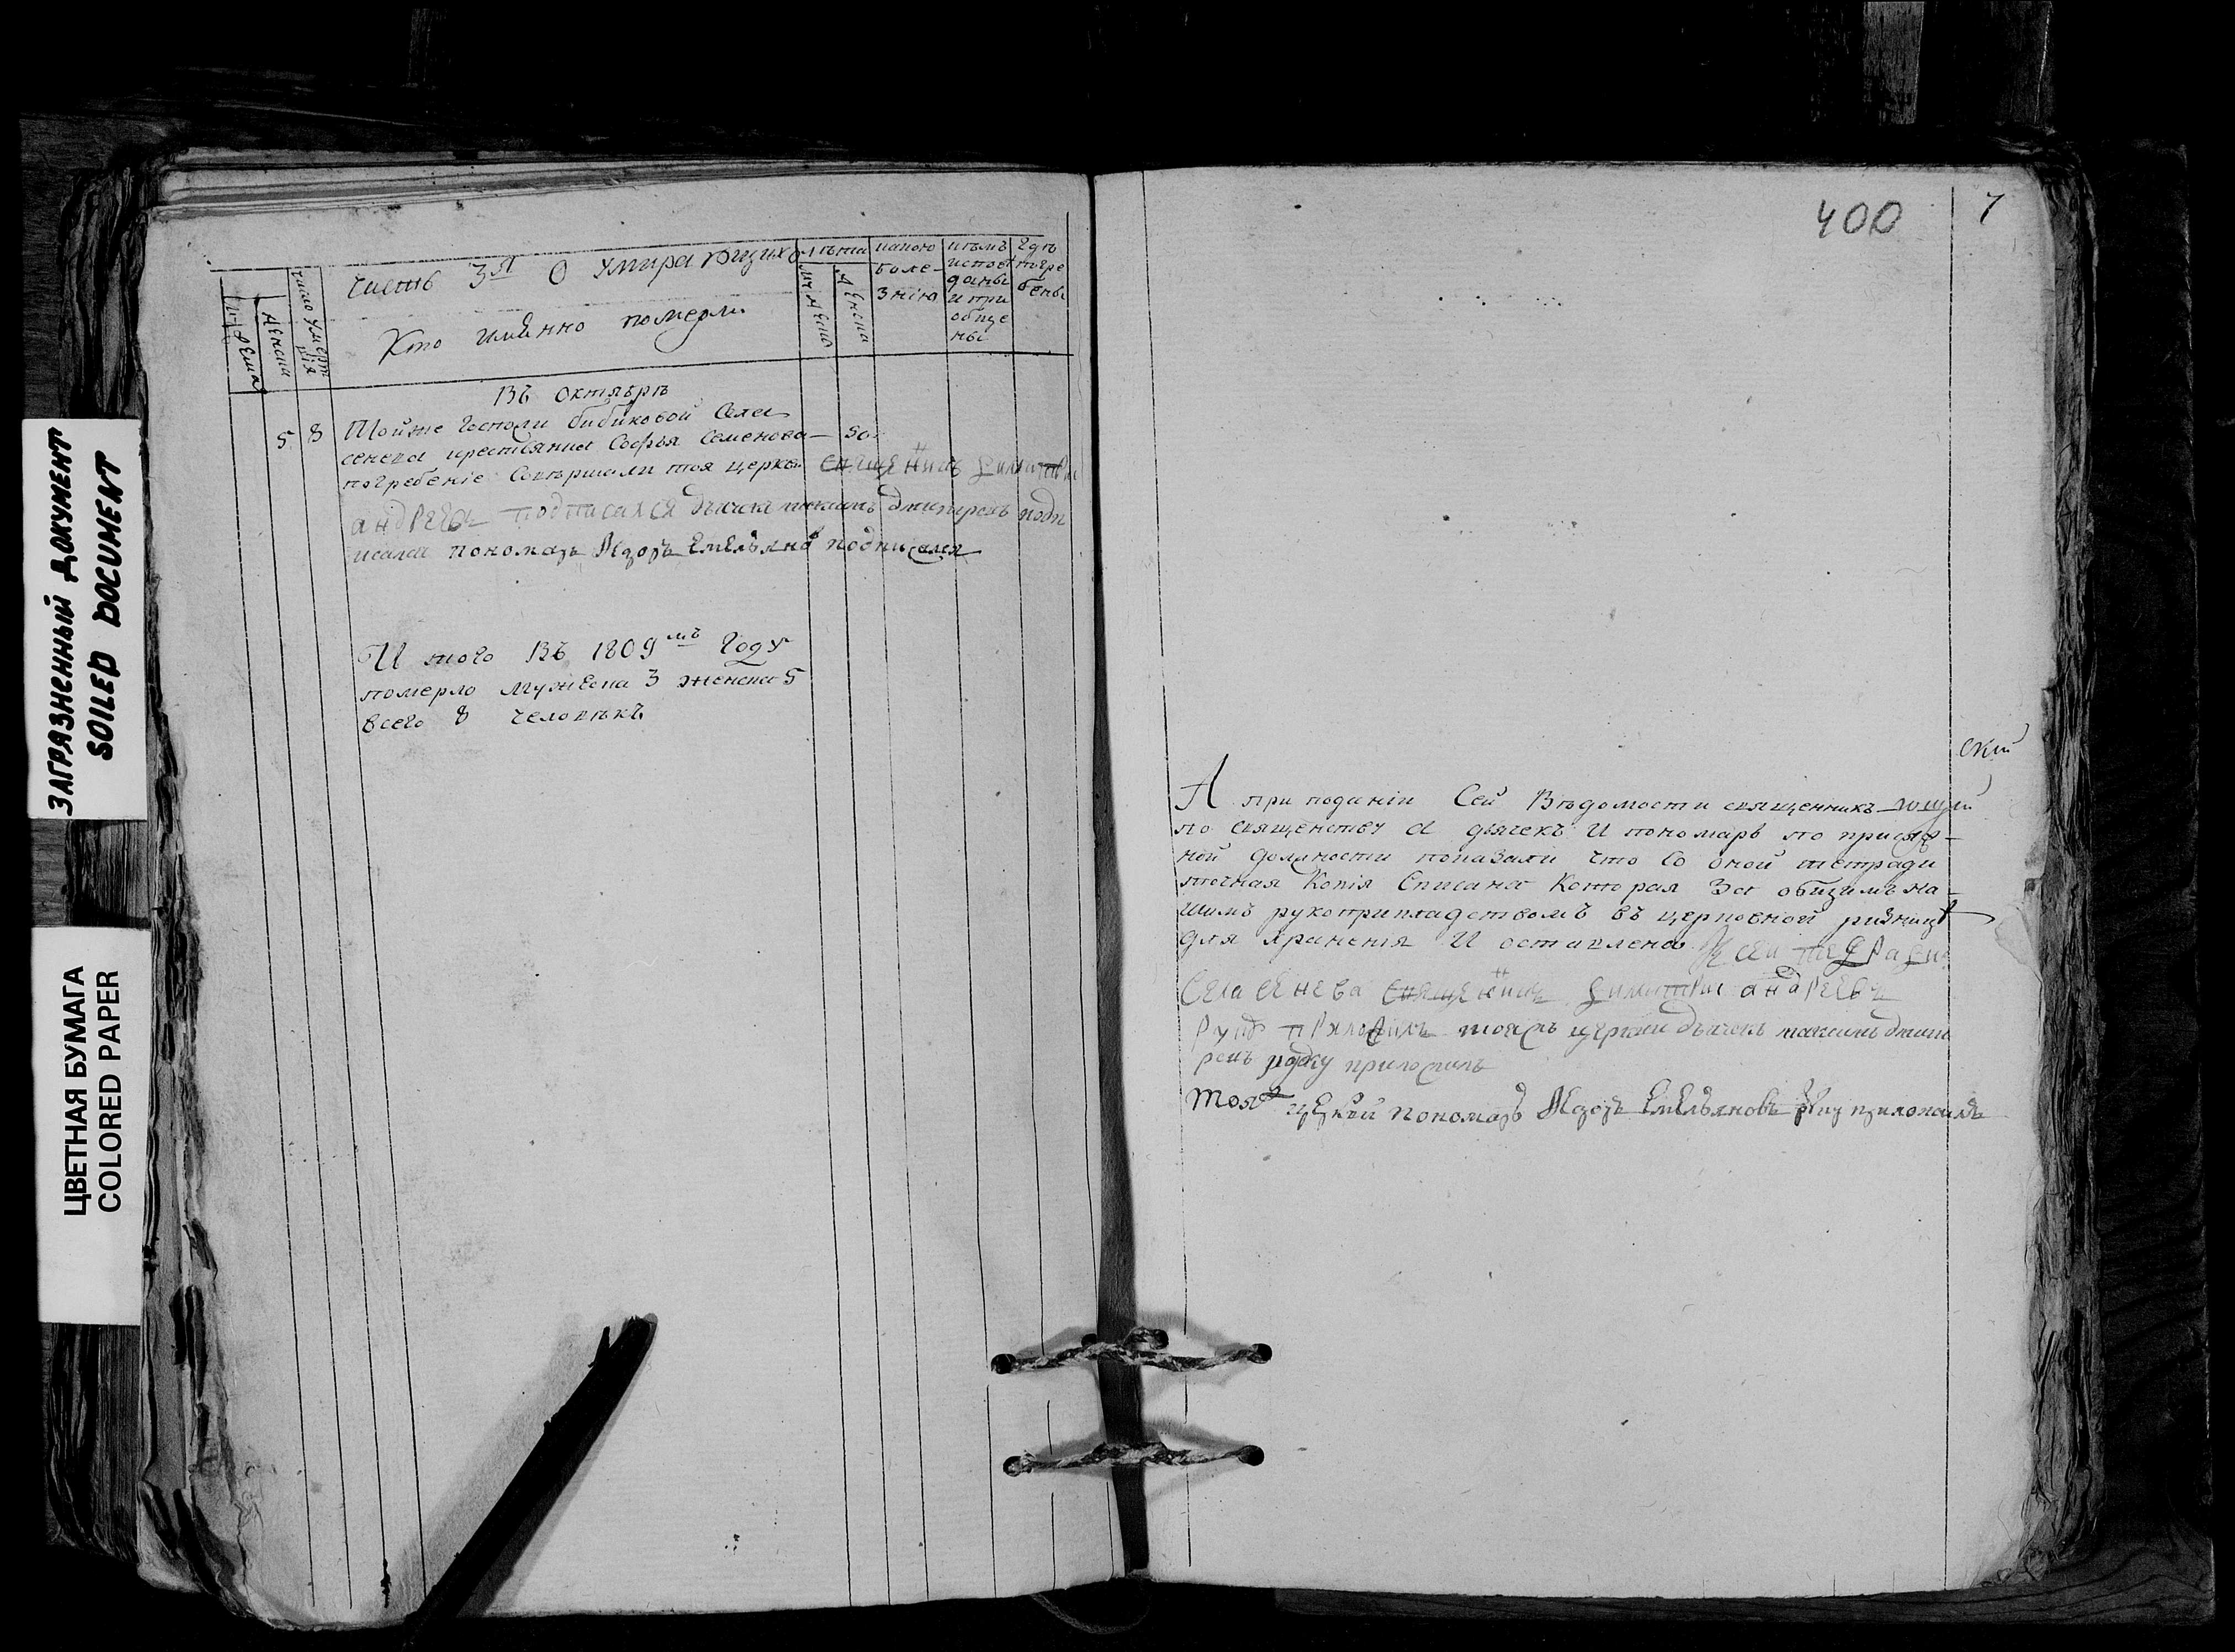 ЗАГРЯЗНЕННЫЙ ДОКУМЕНТ
SOILED DOCUMENT
ЦВЕТНАЯ БУМАГА
COLORED PAPER
Часть 3я О Умирающихъ
Кто имянно померли
число умерт
женска
лѣта
женска
какою
боле-
знію
кѣмъ
исповѣ
даны
и при
обще
ны
гдѣ
погре
бены
Въ октябрѣ
5 8 Тойже Госпожи бибиковой Села
сенева крестьянка Софья Семенова 50
погребеніе Совершали тоя церкви священникъ димитри
андреевъ подписался дьячекъ дмитревъ подп
исался пономарь Егоръ Емельяновъ подписался
И того Въ 1809мъ Году
померло мужеска 3 женска 5
всего 8 человѣкъ
400
7
А при поданіи Сей Вѣдомости священникъ
по священству а дьячекъ И пономарь по присяж-
ной должности показали что Со оной тетради
точная Копія Списана Которая За общимъ на-
шимъ рукоприкладствомъ въ церковной ризницѣ
для храненія И оставлена К сеи тетради
Села сенева священникъ димитри андреевъ
руку приложилъ тояжъ церкви дьячекъ максимъ дмит
ревъ руку приложилъ
тояж церкви пономарь Егоръ Емельяновъ руку приложилъ